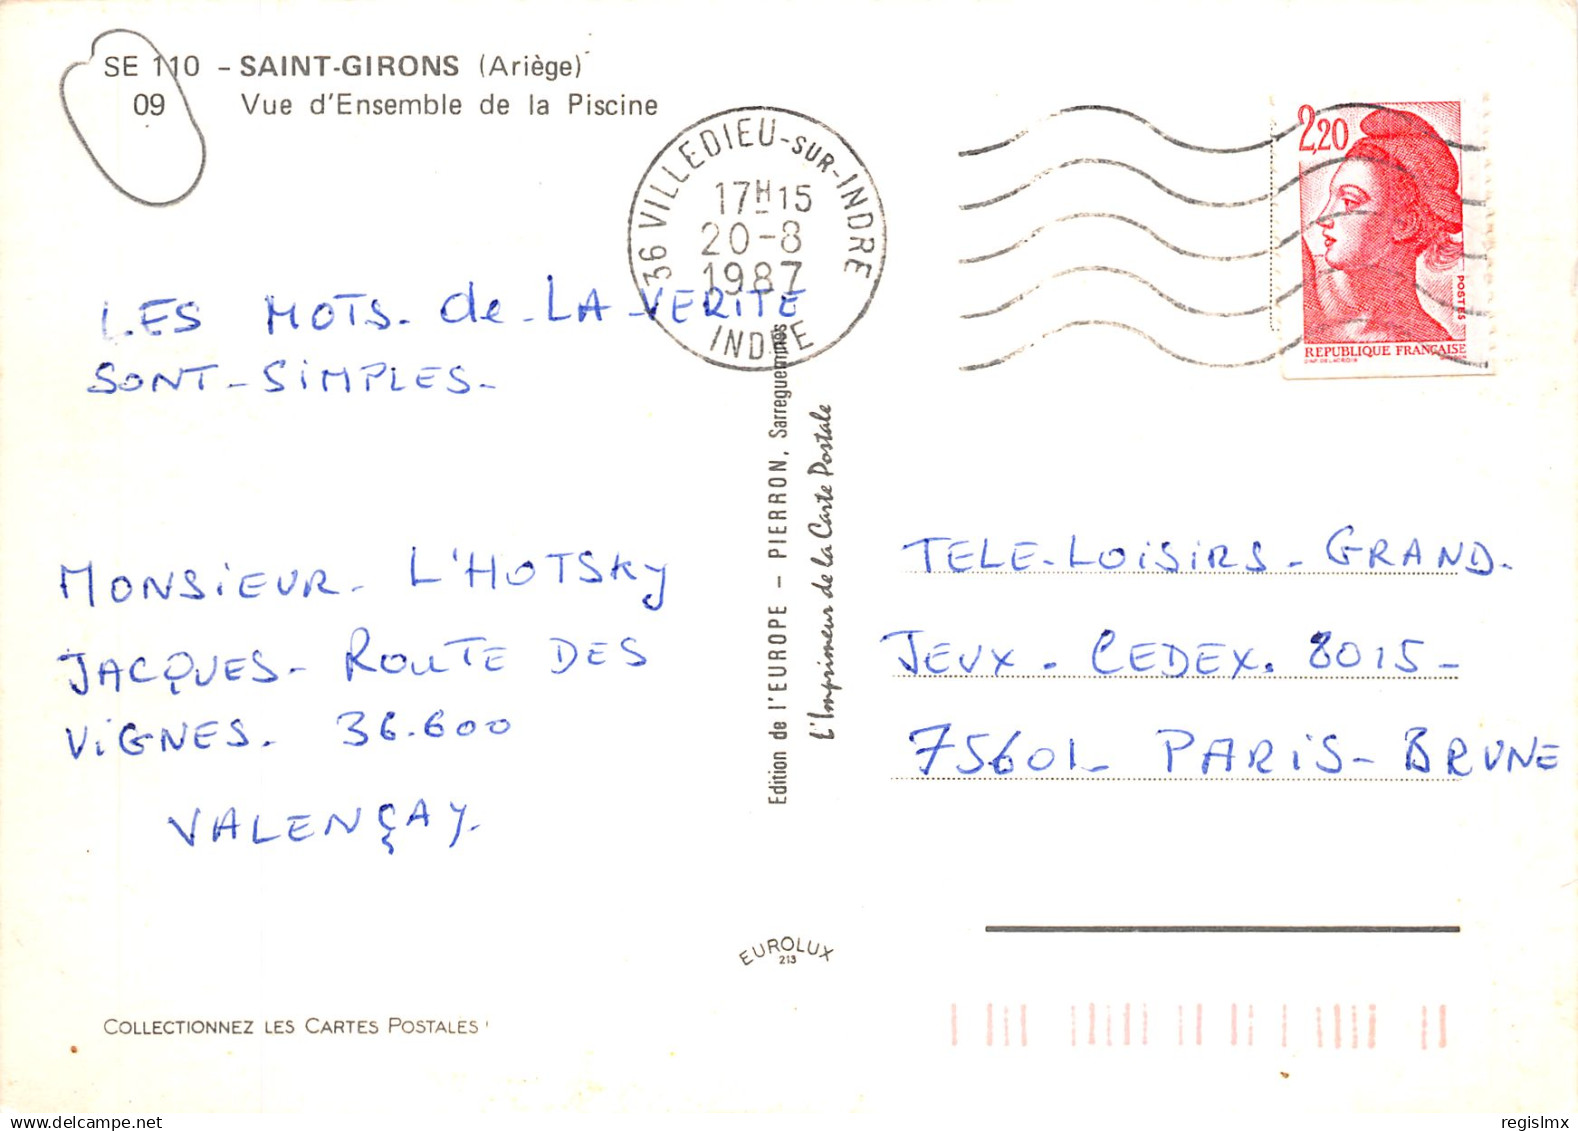 SE 110 - SAINT-GIRONS (Ariège)
09 Vue d'Ensemble de la Piscine
36 VILLEDIEU-SUR-INDRE
17H15
20-8
1987
INDRE
2,20
POSTES
REPUBLIQUE FRANÇAISE
LES MOTS. de - LA VERITE
SONT - SIMPLES -
MONSIEUR - L'HOTSKY
JACQUES - ROUTE DES
VIGNES. 36.600
VALENÇAY.
Edition de l'EUROPE - PIERRON, Sarreguemines
L'Imprimeur de la Carte Postale
TELE-LOISIRS - GRAND.
JEUX - CEDEX. 8015 -
75601 - PARIS - BRUNE
EUROLUX
213
COLLECTIONNEZ LES CARTES POSTALES !
regislmx